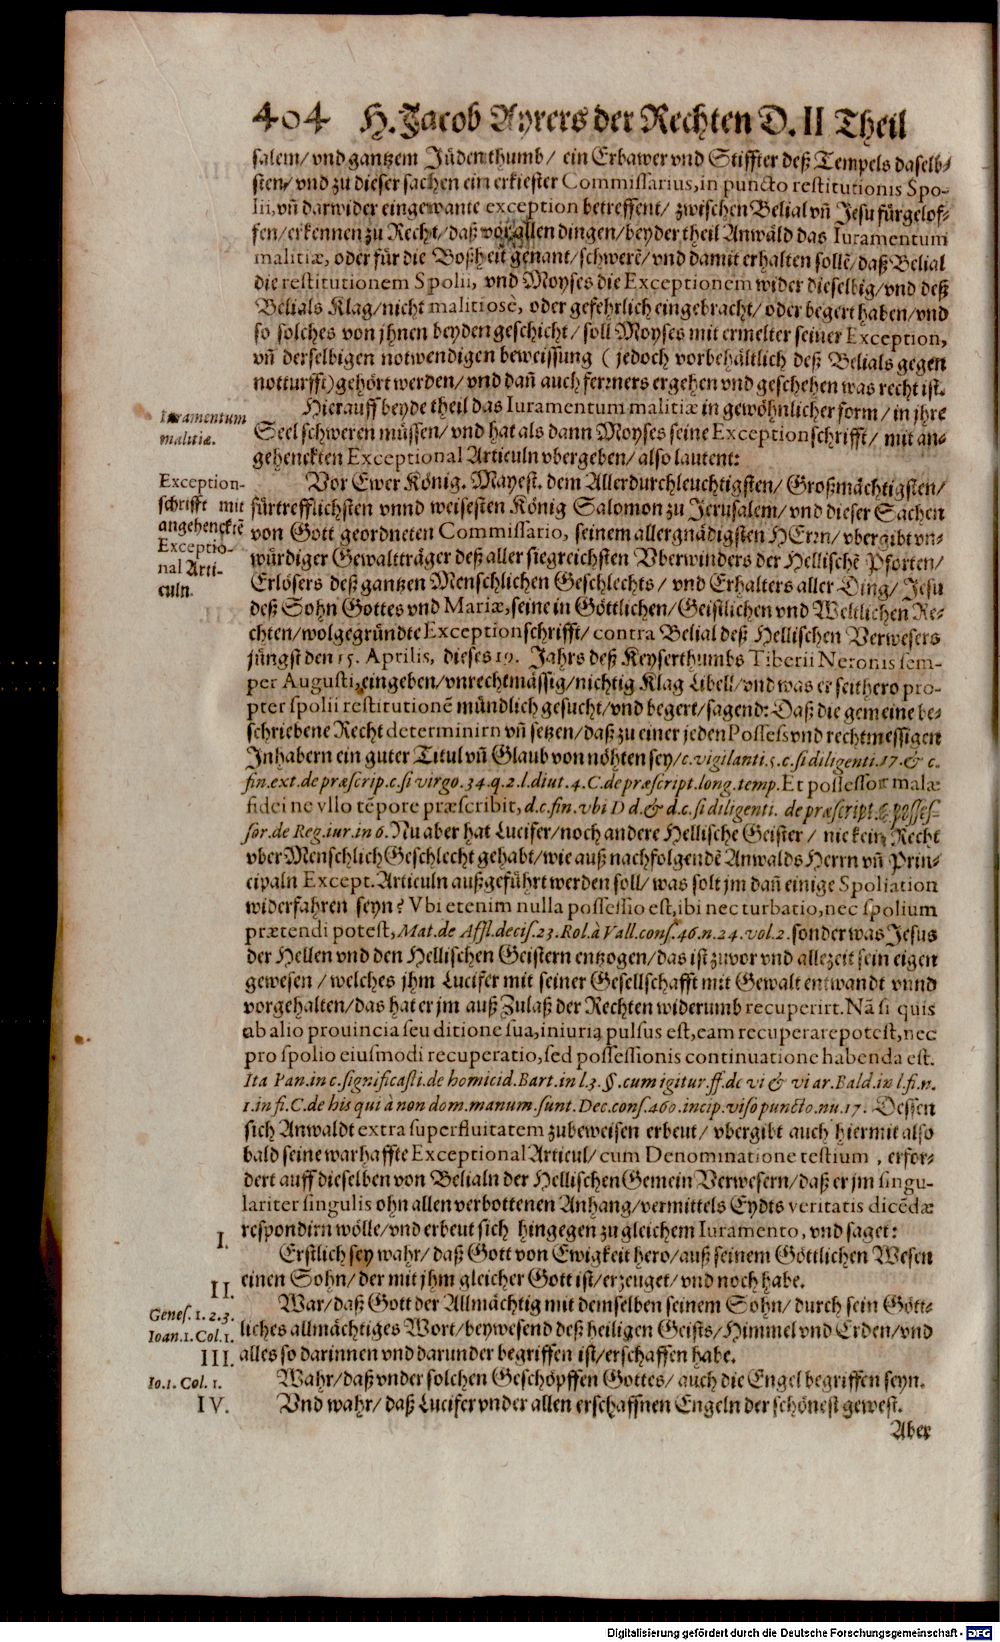 404 H. Jacob Ayrers der Rechten D. II Theil
salem/ vnd gantzem Jüdenthumb/ ein Erbawer vnd Stiffter deß Tempels daselb-
sten/ vnd zu dieser sachen ein erkiester Commissarius, in puncto restitutionis Spo-
lii, vñ darwider eingewante exception betreffent/ zwischen Belial vñ Jesu fürgelof-
fen/ erkennen zu Recht/ daß vor allen dingen/ beyder theil Anwäld das Iuramentum
malitiæ, oder für die Boßheit genant/ schwerẽ/ vnd damit erhalten sollẽ/ daß Belial
die restitutionem Spolii, vnd Moyses die Exceptionem wider dieselbig/ vnd deß
Belials Klag/ nicht malitiosè, oder gefehrlich eingebracht/ oder begert haben/ vnd
so solches von jhnen beyden geschicht/ soll Moyses mit ermelter seiner Exception,
vñ derselbigen notwendigen beweissung (jedoch vorbehältlich deß Belials gegen
notturfft) gehört werden/ vnd dañ auch ferrners ergehen vnd geschehen was recht ist.
Hierauff beyde theil das Iuramentum malitiæ in gewöhnlicher form/ in jhre
Iuramentum
malitiæ.
Seel schweren müssen/ vnd hat als dann Moyses seine Exceptionschrifft/ mit an-
gehenckten Exceptional Articuln vbergeben/ also lautent:
Exception-
schrifft mit
angehencktẽ
Exceptio-
nal Arti-
culn.
Vor Ewer König. Mayest. dem Allerdurchleuchtigsten/ Großmächtigsten/
fürtrefflichsten vnnd weisesten König Salomon zu Jerusalem/ vnd dieser Sachen
von Gott geordneten Commissario, seinem allergnädigsten HErrn/ vbergibt vn-
würdiger Gewaltträger deß aller siegreichsten Vberwinders der Hellischẽ Pforten/
Erlösers deß gantzen Menschlichen Geschlechts/ vnd Erhalters aller Ding/ Jesu
deß Sohn Gottes vnd Mariæ, seine in Göttlichen/ Geistlichen vnd Weltlichen Re-
chten/ wolgegründte Exceptionschrifft/ contra Belial deß Hellischen Verwesers
jüngst den 15. Aprilis, dieses 19. Jahrs deß Keyserthumbs Tiberii Neronis sem-
per Augusti, eingeben/ vnrechtmässig/ nichtig Klag Libell/ vnd was er seithero pro-
pter spolii restitutionẽ mündlich gesucht/ vnd begert/ sagend: Daß die gemeine be-
schriebene Recht determinirn vñ setzen/ daß zu einer jeden Possess vnd rechtmessigen
Inhabern ein guter Titul vñ Glaub von nöhten sey/ c. vigilanti. 5. c. si diligenti. 17. & c.
fin. ext. de præscrip. c. si virgo. 34. q. 2. l. diut. 4. C. de præscript. long. temp. Et possessor malæ
fidei ne vllo tẽpore præscribit, d. c. fin. vbi D d. & d. c. si diligenti. de præscript. & posses-
sor. de Reg. iur. in 6. Nu aber hat Lucifer/ noch andere Hellische Geister/ nie kein Recht
vber Menschlich Geschlecht gehabt/ wie auß nachfolgendẽ Anwalds Herrn vñ Prin-
cipaln Except. Articuln außgeführt werden soll/ was solt jm dañ einige Spoliation
widerfahren seyn? Vbi etenim nulla possessio est, ibi nec turbatio, nec spolium
prætendi potest, Mat. de Affl. decis. 23. Rol. à Vall. cons. 46. n. 24. vol. 2. sonder was Jesus
der Hellen vnd den Hellischen Geistern entzogen/ das ist zuvor vnd allezeit sein eigen
gewesen/ welches jhm Lucifer mit seiner Gesellschafft mit Gewalt entwandt vnnd
vorgehalten/ das hat er jm auß Zulaß der Rechten widerumb recuperirt. Nã si quis
ab alio prouincia seu ditione sua, iniuria pulsus est, eam recuperare potest, nec
pro spolio eiusmodi recuperatio, sed possessionis continuatione habenda est.
Ita Pan. in c. significasti. de homicid. Bart. in l. 3. §. cum igitur. ff. de vi & vi ar. Bald. in l. fi. n.
1. in fi. C. de his qui à non dom. manum. sunt. Dec. cons. 460. incip. viso puncto. nu. 17. Dessen
sich Anwaldt extra superfluitatem zubeweisen erbeut/ vbergibt auch hiermit also
bald seine warhaffte Exceptional Articul/ cum Denominatione testium, erfor-
dert auff dieselben von Belialn der Hellischen Gemein Verwesern/ daß er jm singu-
lariter singulis ohn allen verbottenen Anhang/ vermittels Eydts veritatis dicẽdæ
respondirn wölle/ vnd erbeut sich hingegen zu gleichem Iuramento, vnd saget:
I.
Erstlich sey wahr/ daß Gott von Ewigkeit hero/ auß seinem Göttlichen Wesen
einen Sohn/ der mit jhm gleicher Gott ist/ erzeuget/ vnd noch habe.
II.
Genes. 1. 2. 3.
Ioan. 1. Col. 1.
War/ daß Gott der Allmächtig mit demselben seinem Sohn/ durch sein Gött-
liches allmächtiges Wort/ beywesend deß heiligen Geists/ Himmel vnd Erden/ vnd
alles so darinnen vnd darunder begriffen ist/ erschaffen habe.
III.
Io. 1. Col. 1.
Wahr/ daß vnder solchen Geschöpffen Gottes/ auch die Engel begriffen seyn.
IV.
Vnd wahr/ daß Lucifer vnder allen erschaffnen Engeln der schönest gewest.
Aber
Digitalisierung gefördert durch die Deutsche Forschungsgemeinschaft - DFG